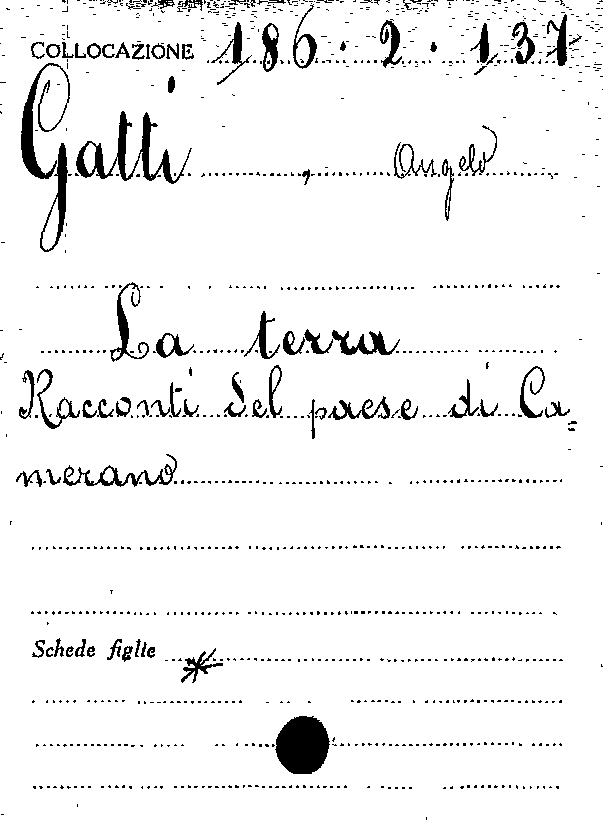 COLLOCAZIONE 186.2.137
Gatti, Angelo
La terra
Racconti del paese di Ca=
merano
Schede figlie *